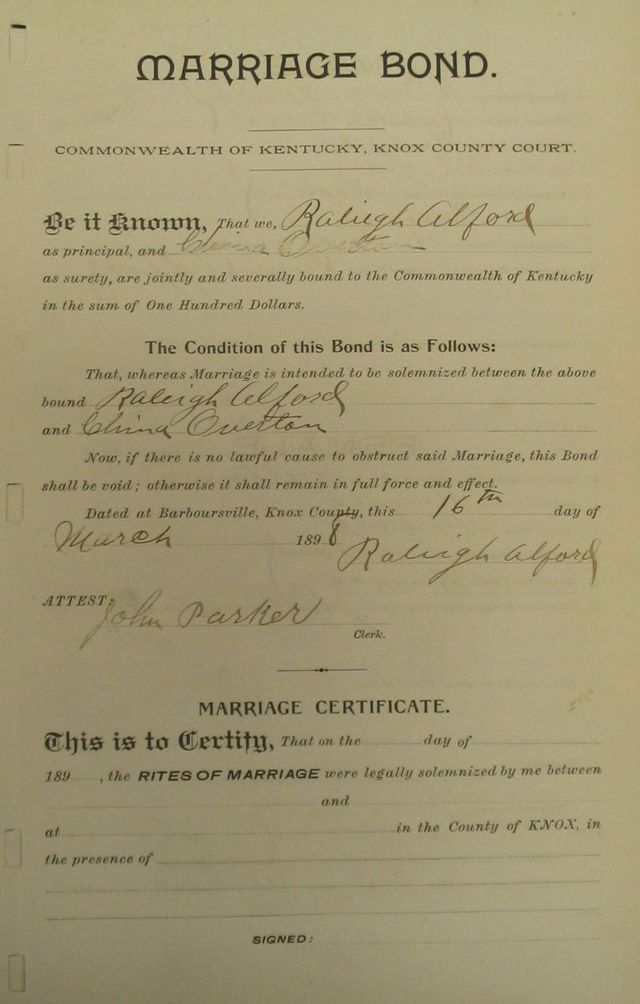 MARRIAGE BOND.
COMMONWEALTH OF KENTUCKY, KNOX COUNTY COURT.
Be it Known, That we, Raleigh Alford
as principal, and China Overton
as surety, are jointly and severally bound to the Commonwealth of Kentucky
in the sum of One Hundred Dollars.
The Condition of this Bond is as Follows:
That, whereas Marriage is intended to be solemnized between the above
bound Raleigh Alford
and China Overton
Now, if there is no lawful cause to obstruct said Marriage, this Bond
shall be void; otherwise it shall remain in full force and effect.
Dated at Barboursville, Knox County, this 16th day of
March 1898
Raleigh Alford
ATTEST, John Parker
Clerk.
MARRIAGE CERTIFICATE.
This is to Certify, That on the day of
189 , the RITES OF MARRIAGE were legally solemnized by me between
and
at in the County of KNOX, in
the presence of
SIGNED: